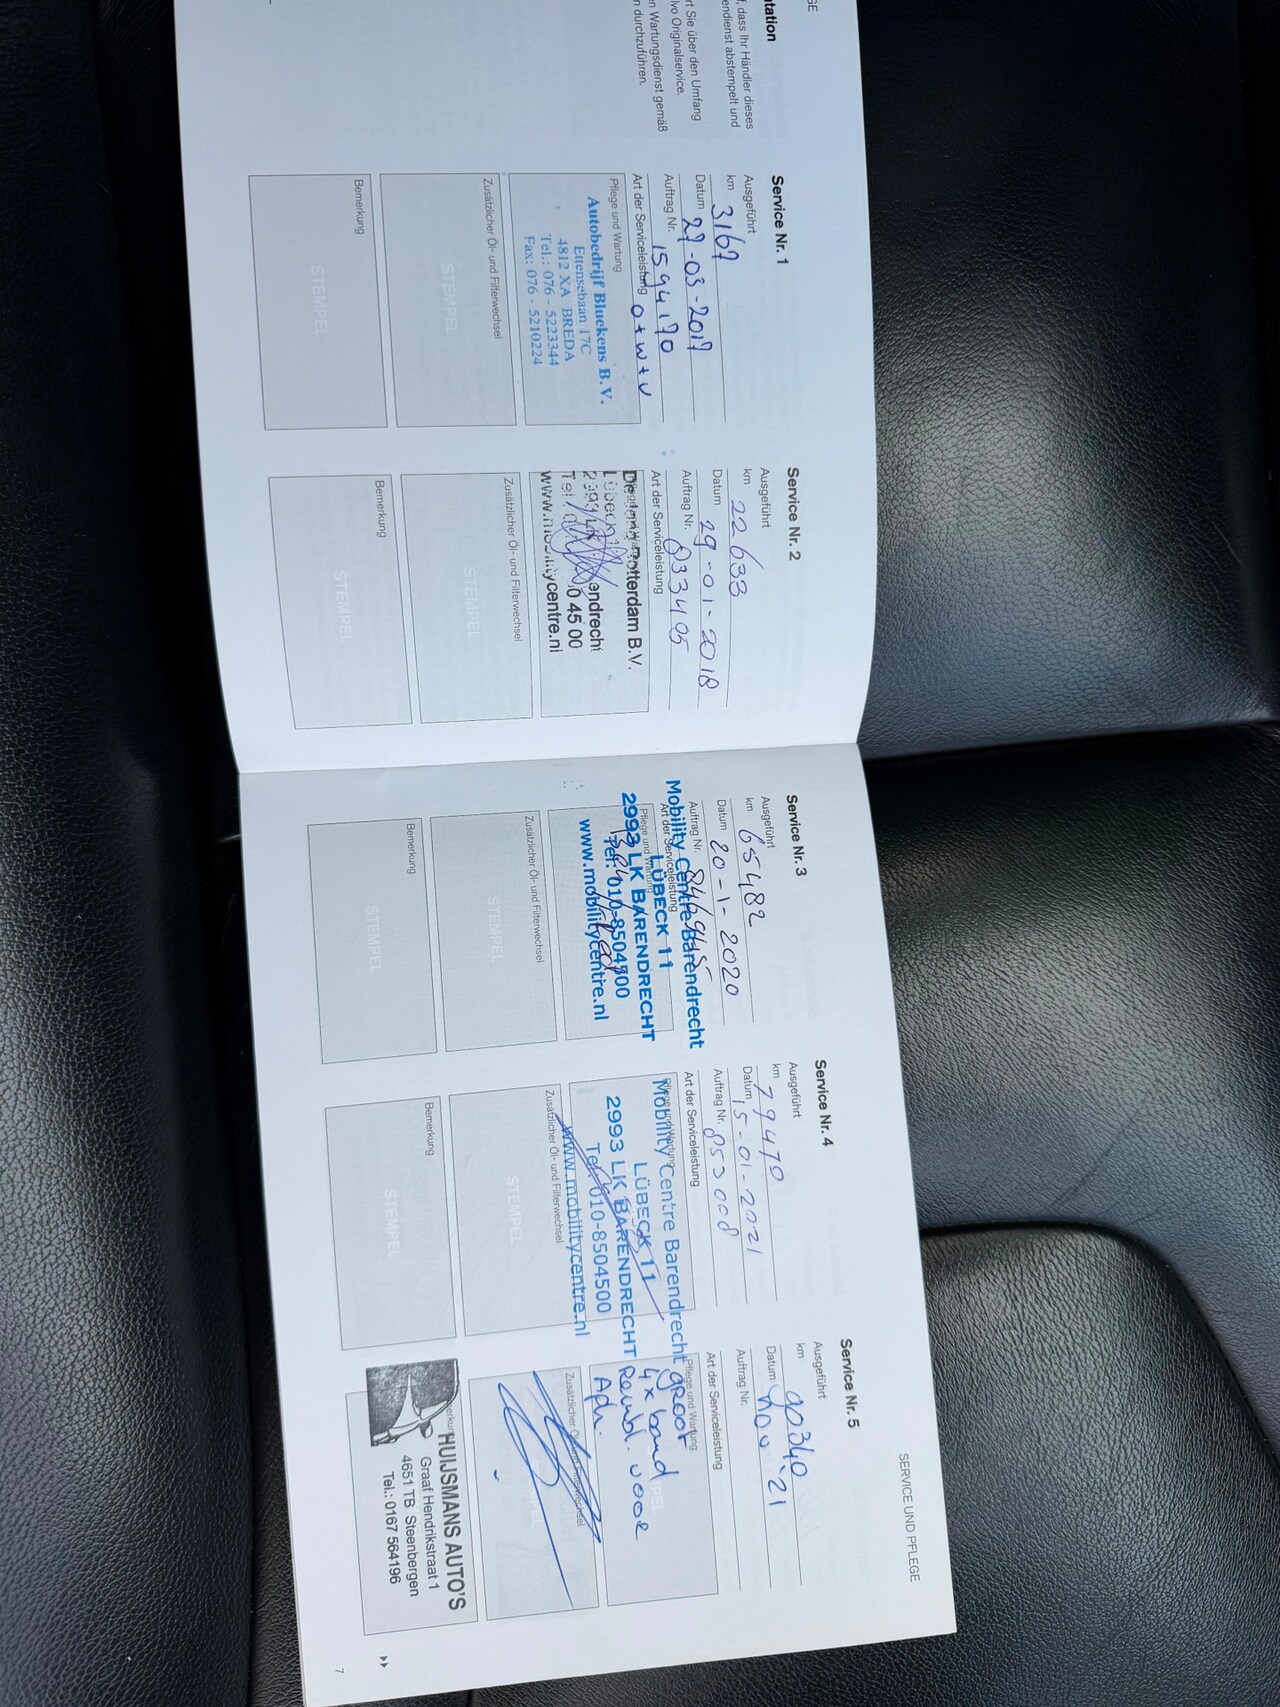 GE
tation
, dass Ihr Händler dieses
endienst abstempelt und
rt Sie über den Umfang
lvo Originalservice.
n Wartungsdienst gemäß
n durchzuführen.
Service Nr. 1
Ausgeführt
km 3167
Datum 27-03-2017
Auftrag Nr. 1594170
Art der Serviceleistung O+W+V
Pflege und Wartung
Autobedrijf Bluekens B.V.
Ettensebaan 17C
4812 XA BREDA
Tel.: 076 - 5223344
Fax: 076 - 5210224
Zusätzlicher Öl- und Filterwechsel
STEMPEL
Bemerkung
STEMPEL
Service Nr. 2
Ausgeführt
km 22633
Datum 29-01-2018
Auftrag Nr. 833495
Art der Serviceleistung
Rotterdam B.V.
Lübeck
endrecht
0 45 00
Zusätzlicher Öl- und Filterwechsel
STEMPEL
Bemerkung
STEMPEL
SERVICE UND PFLEGE
Service Nr. 3
Ausgeführt
km 65482
Datum 20-1-2020
Auftrag Nr.
Art der Serviceleistung
Pflege und Wartung
Mobility Centre Barendrecht
LÜBECK 11
2993 LK BARENDRECHT
Tel. 010-8504500
www.mobilitycentre.nl
Zusätzlicher Öl- und Filterwechsel
STEMPEL
Bemerkung
STEMPEL
Service Nr. 4
Ausgeführt
km 79470
Datum 15-01-2021
Auftrag Nr. 853008
Art der Serviceleistung
Pflege und Wartung
Mobility Centre Barendrecht
LÜBECK 11
2993 LK BARENDRECHT
Tel. 010-8504500
www.mobilitycentre.nl
Zusätzlicher Öl- und Filterwechsel
STEMPEL
Bemerkung
STEMPEL
Service Nr. 5
Ausgeführt
km 90340
Datum nov '21
Auftrag Nr.
Art der Serviceleistung
Pflege und Wartung
groot
4x band
Rembl. voor
Ach.
HUIJSMANS AUTO'S
Graaf Hendrikstraat 1
4651 TB Steenbergen
Tel.: 0167 564196
7